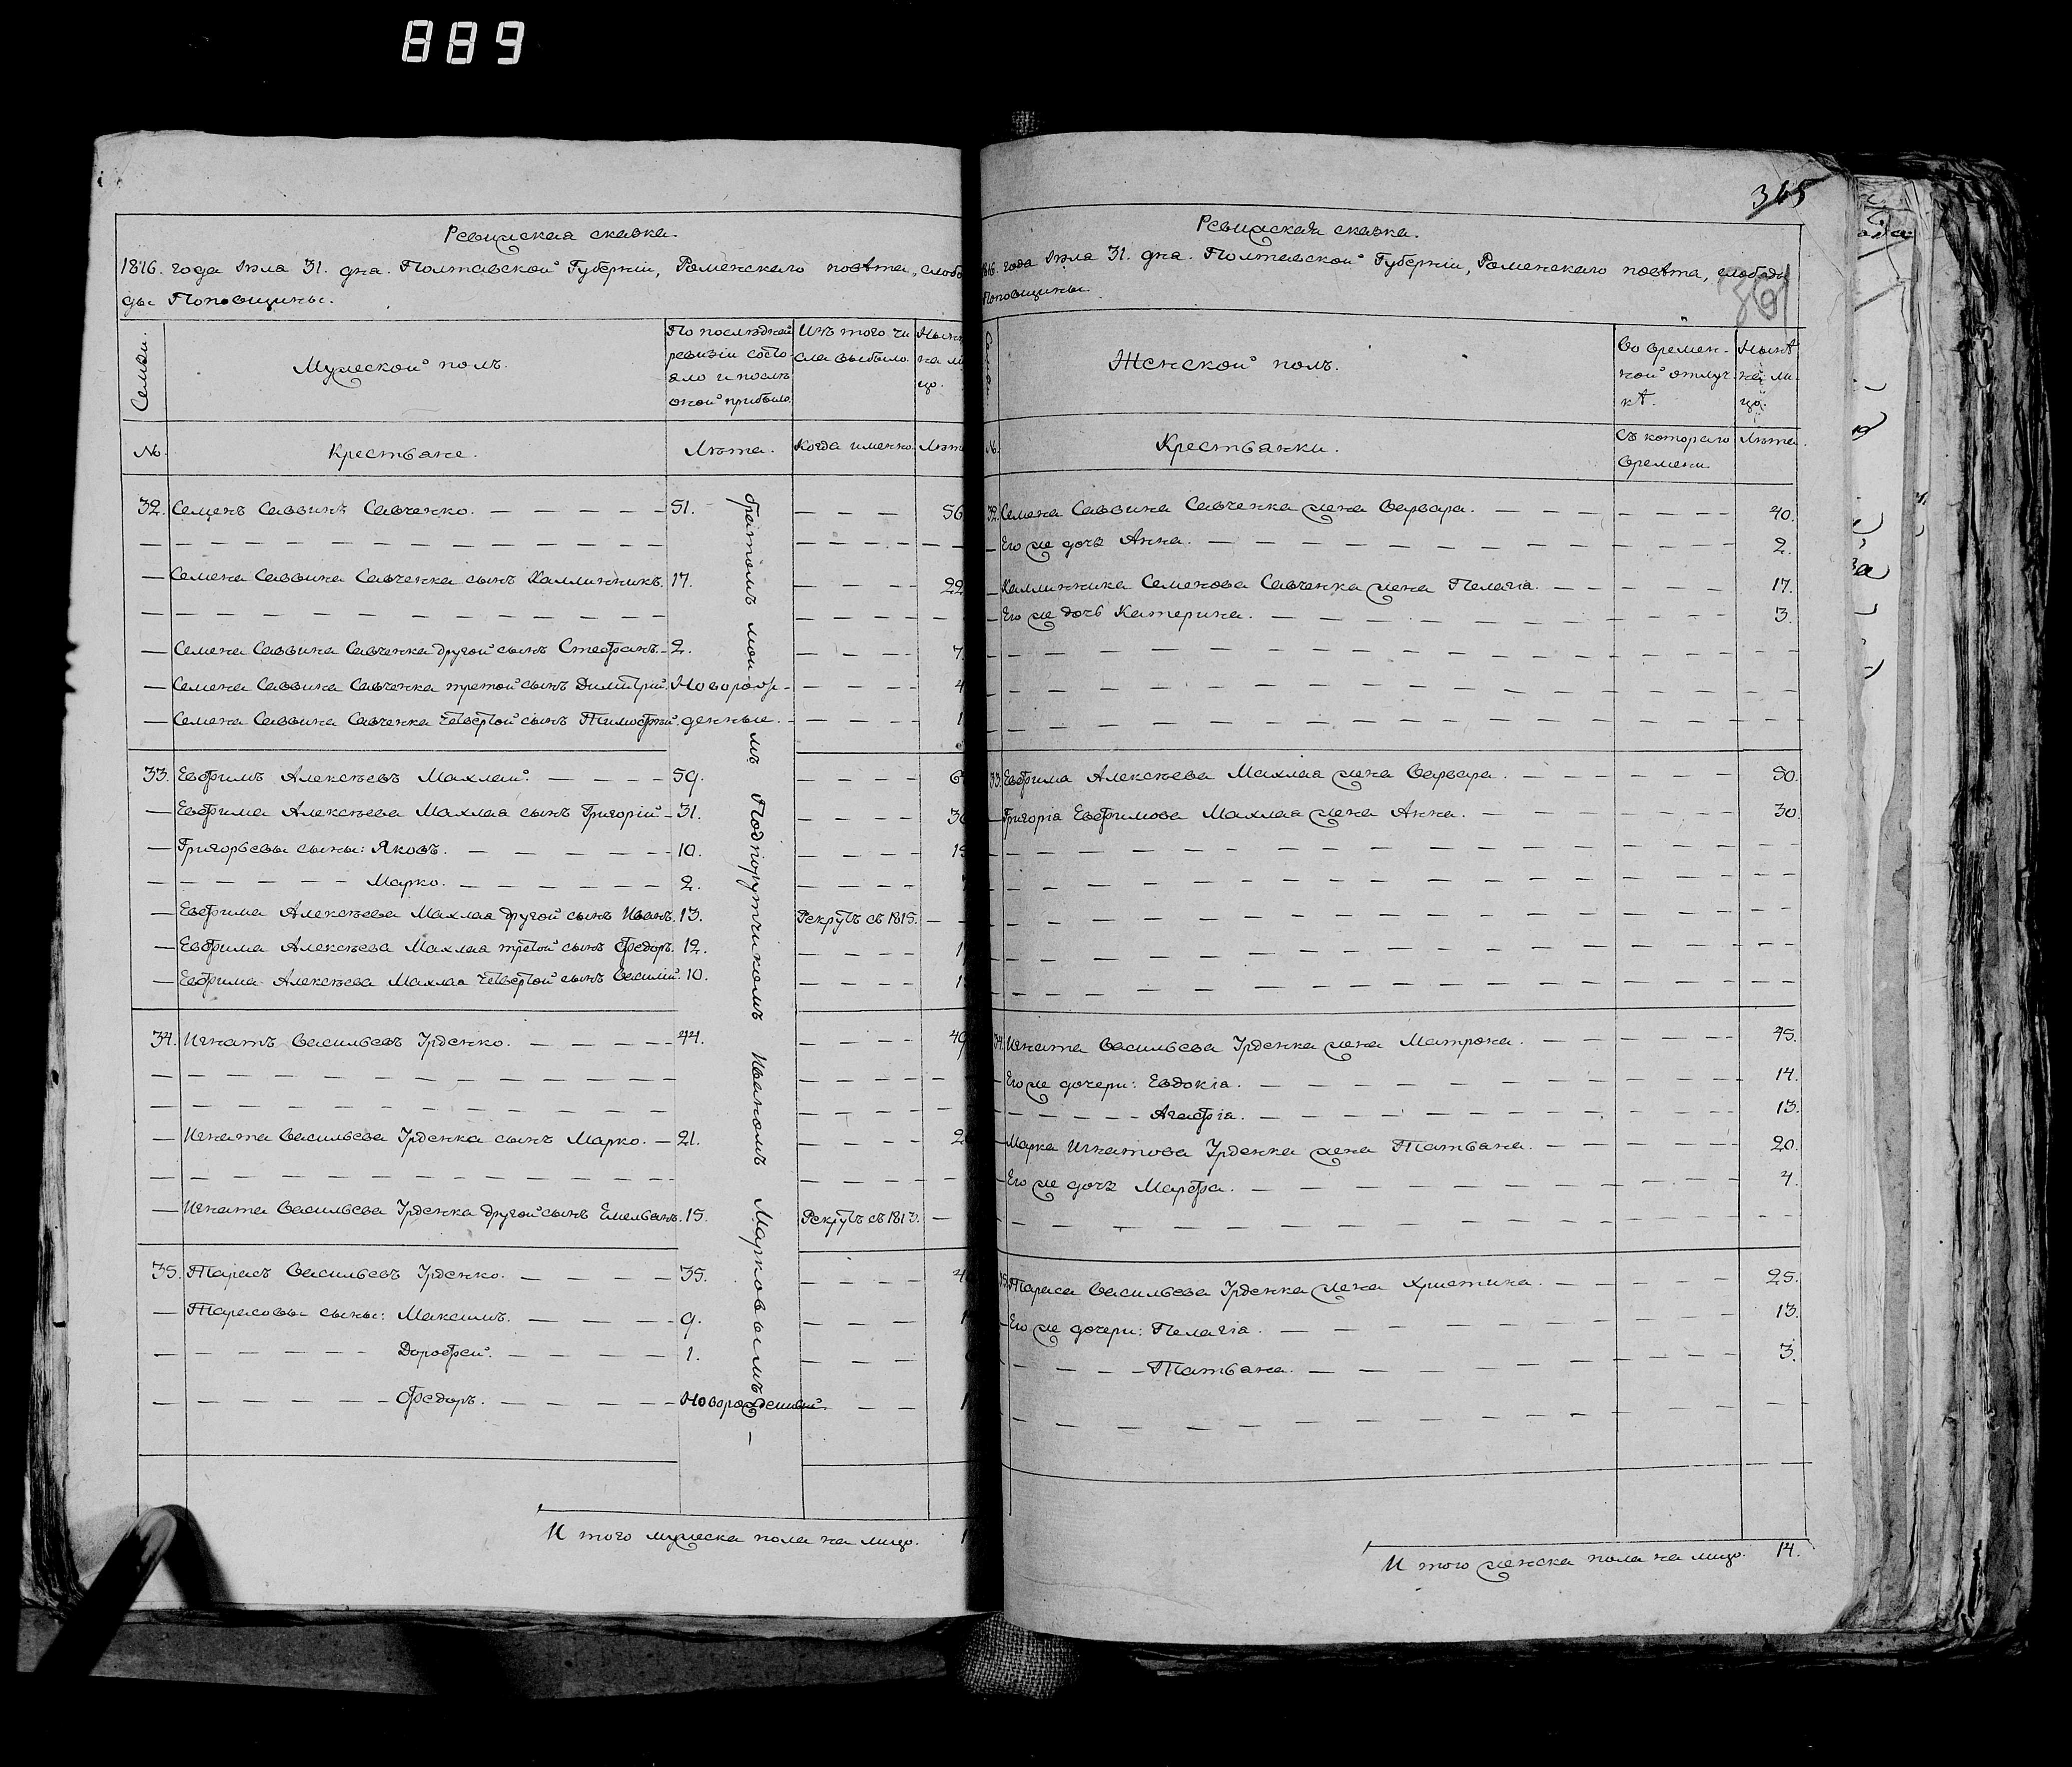 889
Ревижская сказка.
1816. года Іюла 31. дна. Полтавской Губерніи, Роменскаго повѣта, слобо
ды Поповщины.
Семьи.
Мужеской полъ.
По послѣдней
ревизіи состо-
яло и послѣ
оной прибыло.
Изъ того чи
сла выбыло.
Нынѣ
на ли
цо.
№.
Крестьяне.
Лѣта.
Когда именно.
Лѣта
32. Семенъ Саввинъ Савченко. 51. 56
Семена Саввина Савченка сынъ Каллинникъ. 17. 22
Семена Саввина Савченка другой сынъ Стефанъ. 2. 7.
Семена Саввина Савченка третой сынъ Димитрій. Новорож- 4
Семена Саввина Савченка четвертой сынъ Тимофѣй. денные. 1
33. Евфимъ Алексѣевъ Махлай. 59. 6
Евфима Алексѣева Махлая сынъ Григорій 31. 36
Григорьевы сыны: Яковъ. 10. 15
Марко. 2.
Евфима Алексѣева Махлая другой сынъ Иванъ. 13. Рекрутъ съ 1815.
Евфима Алексѣева Махлая третой сынъ Федоръ. 12. 1
Евфима Алексѣева Махлая четвертой сынъ Василій. 10. 1
34. Игнатъ Васильевъ Ірденко. 44. 49
Игната Васильева Ірденка сынъ Марко. 21. 2
Игната Васильева Ірденка другой сынъ Емельянъ. 15. Рекрутъ съ 1813.
35. Тарасъ Васильевъ Ірденко. 35. 4
Тарасовы сыны: Максимъ. 9. 1
Дорофей. 1.
Федоръ. Новорожденный. 1
братомъ моимъ Подпорутчикомъ Иваномъ Марковымъ
И того мужеска пола на лицо. 1
365
Ревижская сказка.
1816. года Іюла 31. дна. Полтавской Губерніи, Роменскаго повѣта, слободы
Поповщины.
Женской полъ.
Во времен-
ной отлуч-
кѣ.
Нынѣ
на ли-
цо.
№.
Крестьянки.
Съ котораго
времени
Лѣта.
32. Семена Саввина Савченка жена Варвара. 40.
Его же дочь Анна. 2.
Каллинника Семенова Савченка жена Пелагіа. 17.
Его же дочь Катерина. 3.
33. Евфима Алексѣева Махлая жена Варвара. 50.
Григоріа Евфимова Махлая жена Анна. 30.
34. Игната Васильева Ірденка жена Матрона. 45.
Его же дочери: Евдокіа. 14.
Агафіа. 13.
Марка Игнатова Ірденка жена Татьяна. 20.
Его же дочь Марфа. 4.
35. Тараса Васильева Ірденка жена Христина. 25.
Его же дочери: Пелагіа. 13.
Татьяна. 3.
И того женска пола на лицо. 14.